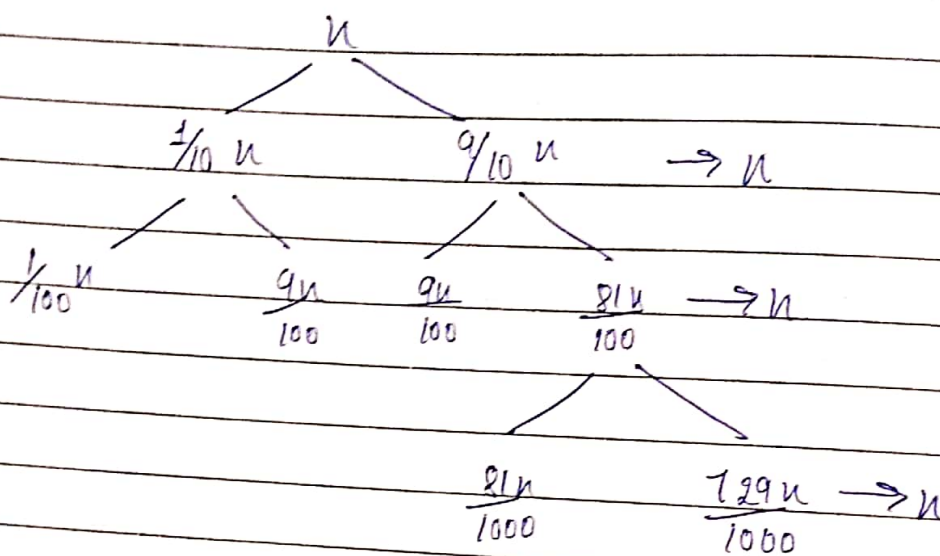 n
1/10 n 9/10 n → n
1/100 n 9n/100 9n/100 81n/100 → n
81n/1000 729n/1000 → n